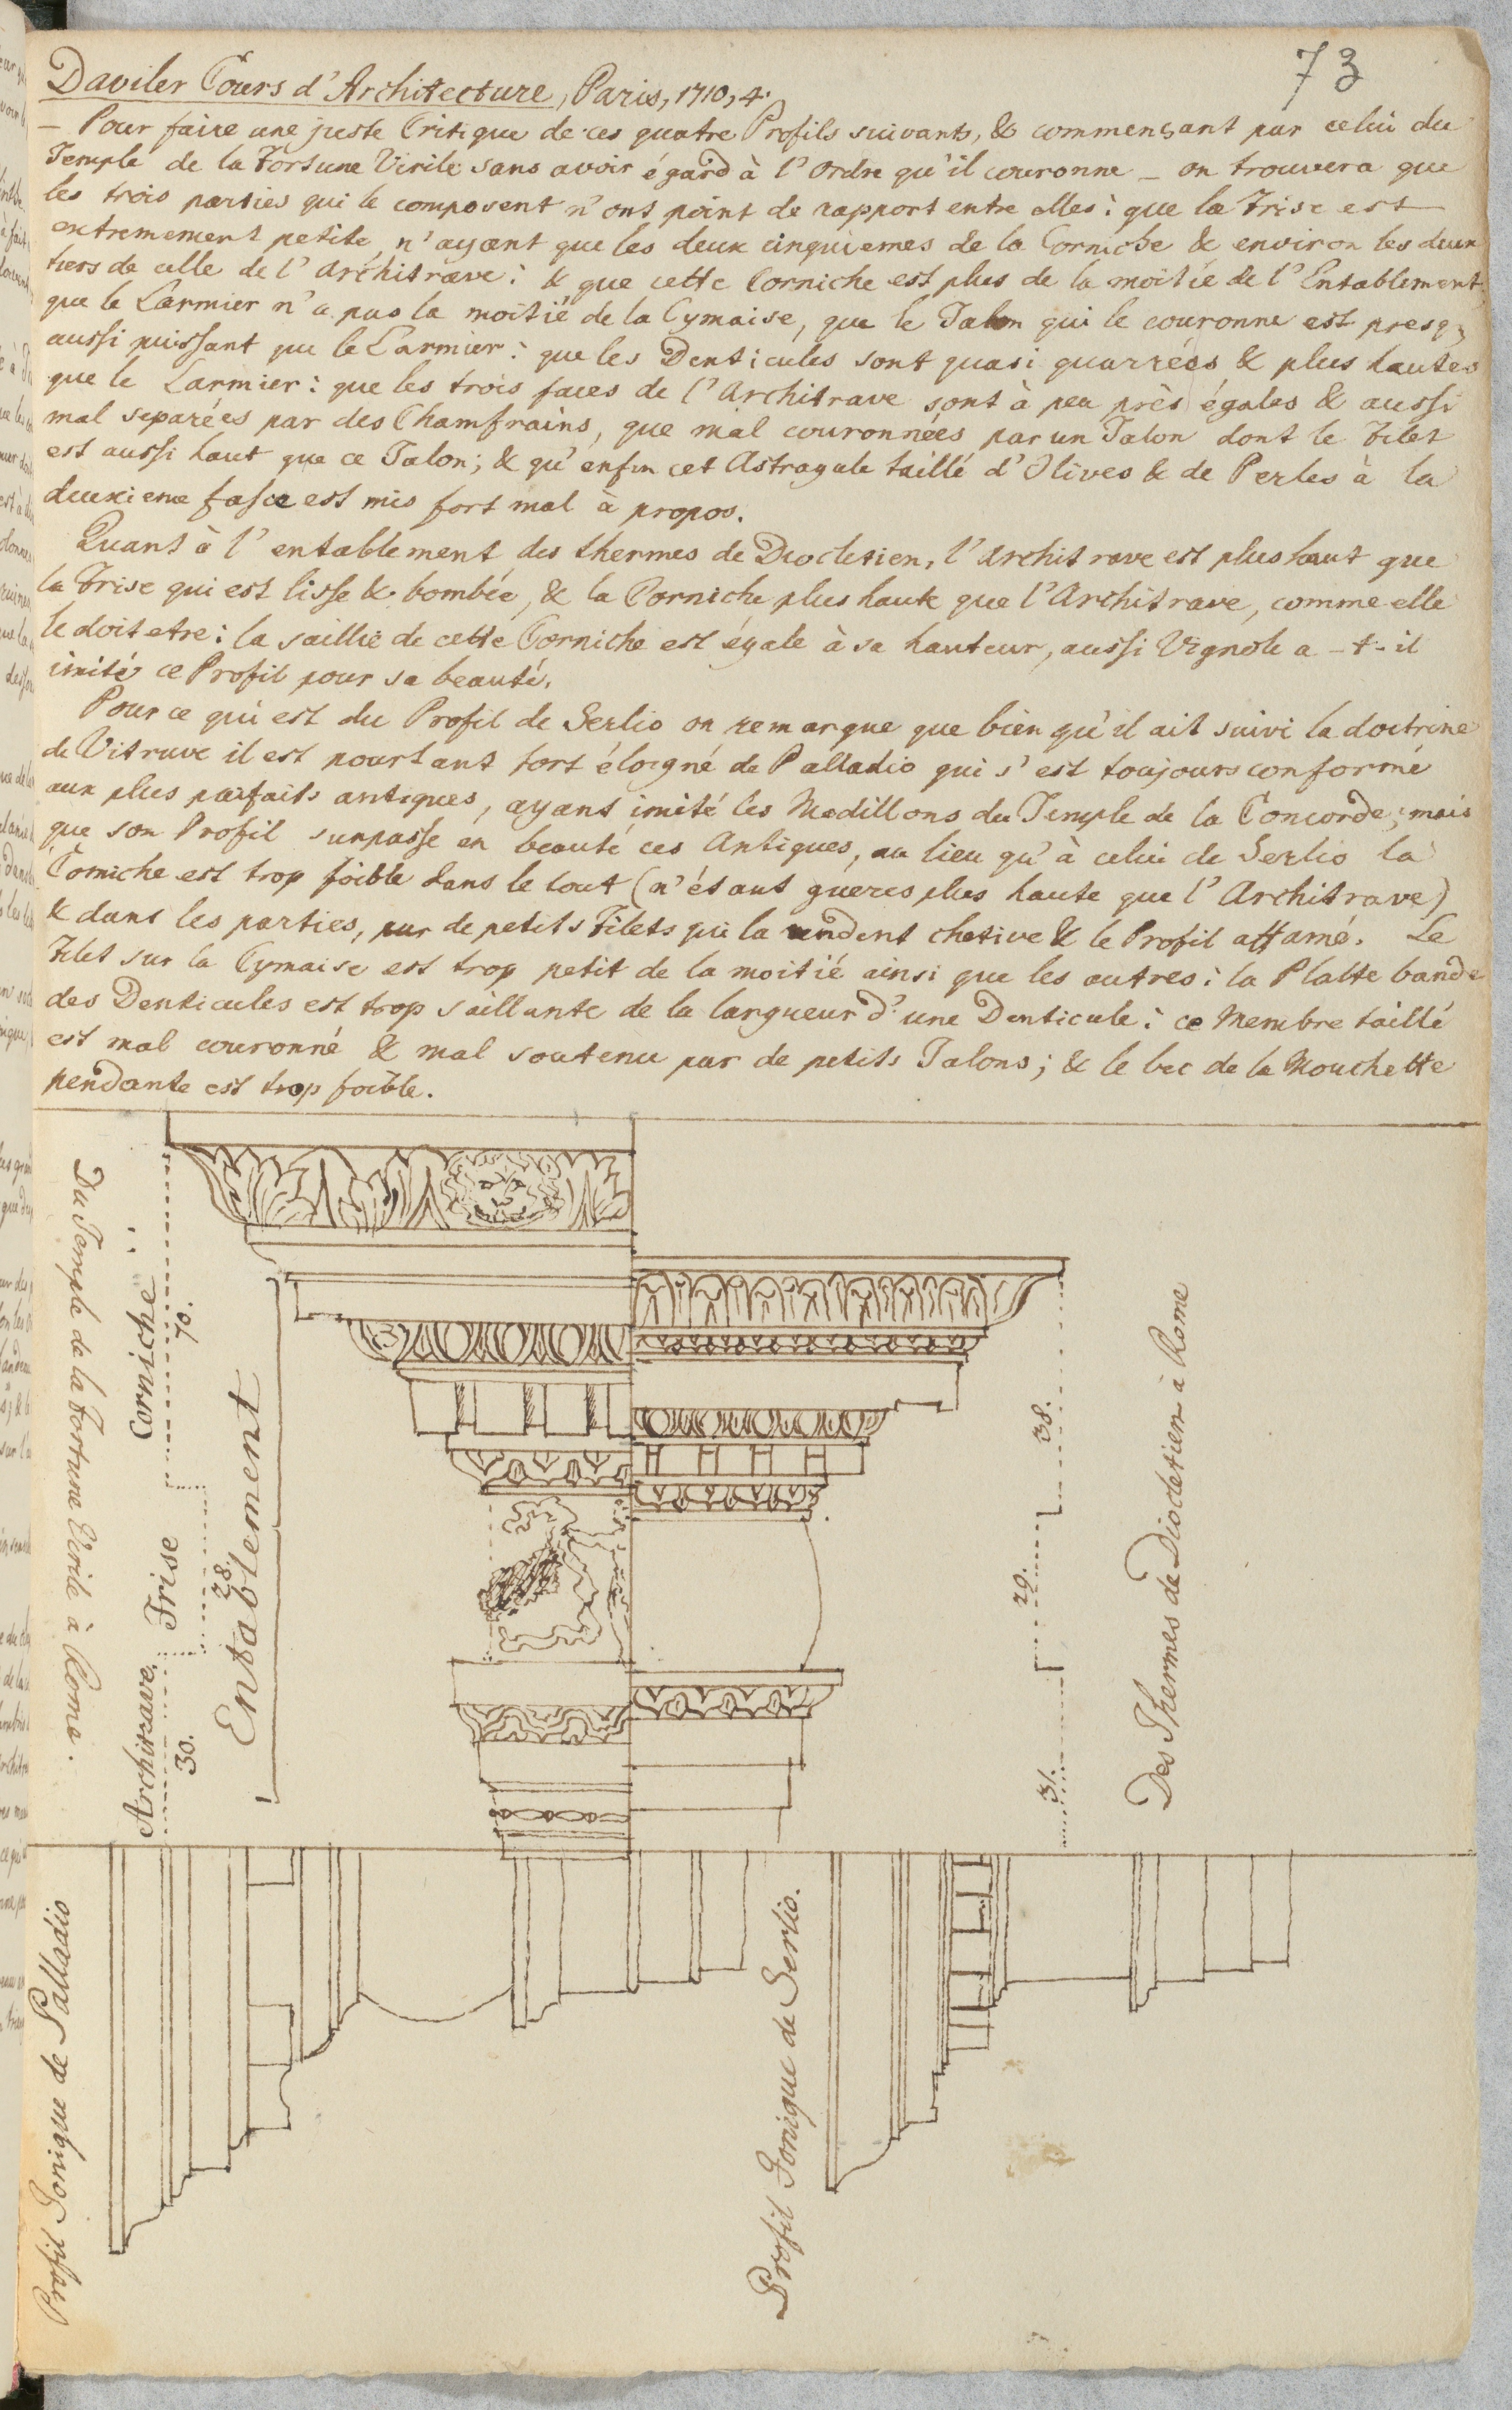 73
Daviler Cours d'Architecture, Paris, 1710, 4.
— Pour faire une juste Critique de ces quatre Profils suivants, & commençant par celui du
Temple de la Fortune Virile sans avoir égard à l'Ordre qu'il couronne — on trouvera que
les trois parties qui le composent n'ont point de rapport entre elles: que la Frise est
extremement petite n'ayant que les deux cinquiemes de la Corniche & environ les deux
tiers de celle de l'Architrave: & que cette Corniche est plus de la moitié de l'Entablement:
que le Larmier n'a pas la moitié de la Cymaise, que le Talon qui le couronne est presq;
aussi puissant que le Larmier: que les Denticules sont quasi quarrées & plus hautes
que le Larmier: que les trois faces de l'Architrave sont à peu près égales & aussi
mal separées par des Chamfrains, que mal couronnées par un Talon dont le Filet
est aussi haut que ce Talon; & qu'enfin cet Astragale taillé d'Olives & de Perles à la
deuxieme fasce est mis fort mal à propos.
Quant à l'entablement des thermes de Diocletien, l'architrave est plus haut que
la Frise qui est lisse & bombée, & la Corniche plus haute que l'Architrave, comme elle
le doit etre: la saillie de cette Corniche est égale à sa hauteur, aussi Vignole a-t-il
imité ce Profil pour sa beauté.
Pour ce qui est du Profil de Serlio on remarque que bien qu'il ait suivi la doctrine
de Vitruve il est pourtant fort éloigné de Palladio qui s'est toujours conformé
aux plus parfaits antiques, ayant imité les Modillons du Temple de la Concorde; mais
que son Profil surpasse en beauté ces Antiques, au lieu qu'à celui de Serlio la
Corniche est trop foible dans le tout (n'étant gueres plus haute que l'Architrave)
& dans les parties, par de petits Filets qui la rendent chetive & le Profil affamé. Le
Filet sur la Cymaise est trop petit de la moitié ainsi que les autres: la Platte bande
des Denticules est trop saillante de la largueur d'une Denticule: ce Membre taillé
est mal couronné & mal soutenu par de petits Talons; & le bec de la Mouchette
pendante est trop foible.
Du Temple de la Fortune Virile à Rome.
Corniche
70.
Frise
28.
Architrave
30.
Entablement
38.
29.
31.
Des Thermes de Diocletien à Rome
Profil Ionique de Palladio
Profil Ionique de Serlio.